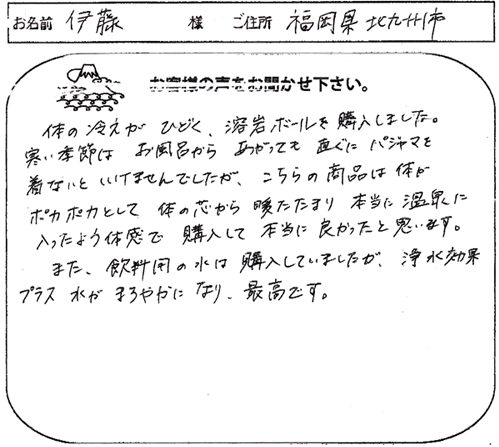 お名前 伊藤 様 ご住所 福岡県北九州市
お客様の声をお聞かせ下さい。
体の冷えが ひどく、溶岩ボールを購入しました。
寒い季節は お風呂から あがっても 直ぐに パジャマを
着ないと いけませんでしたが、こちらの商品は体が
ポカポカとして 体の芯から 暖たたまり 本当に 温泉に
入ったよう体感で 購入して 本当に 良かったと思います。
また、飲料用の水は 購入していましたが、浄水効果
プラス 水が まろやかに なり、最高です。